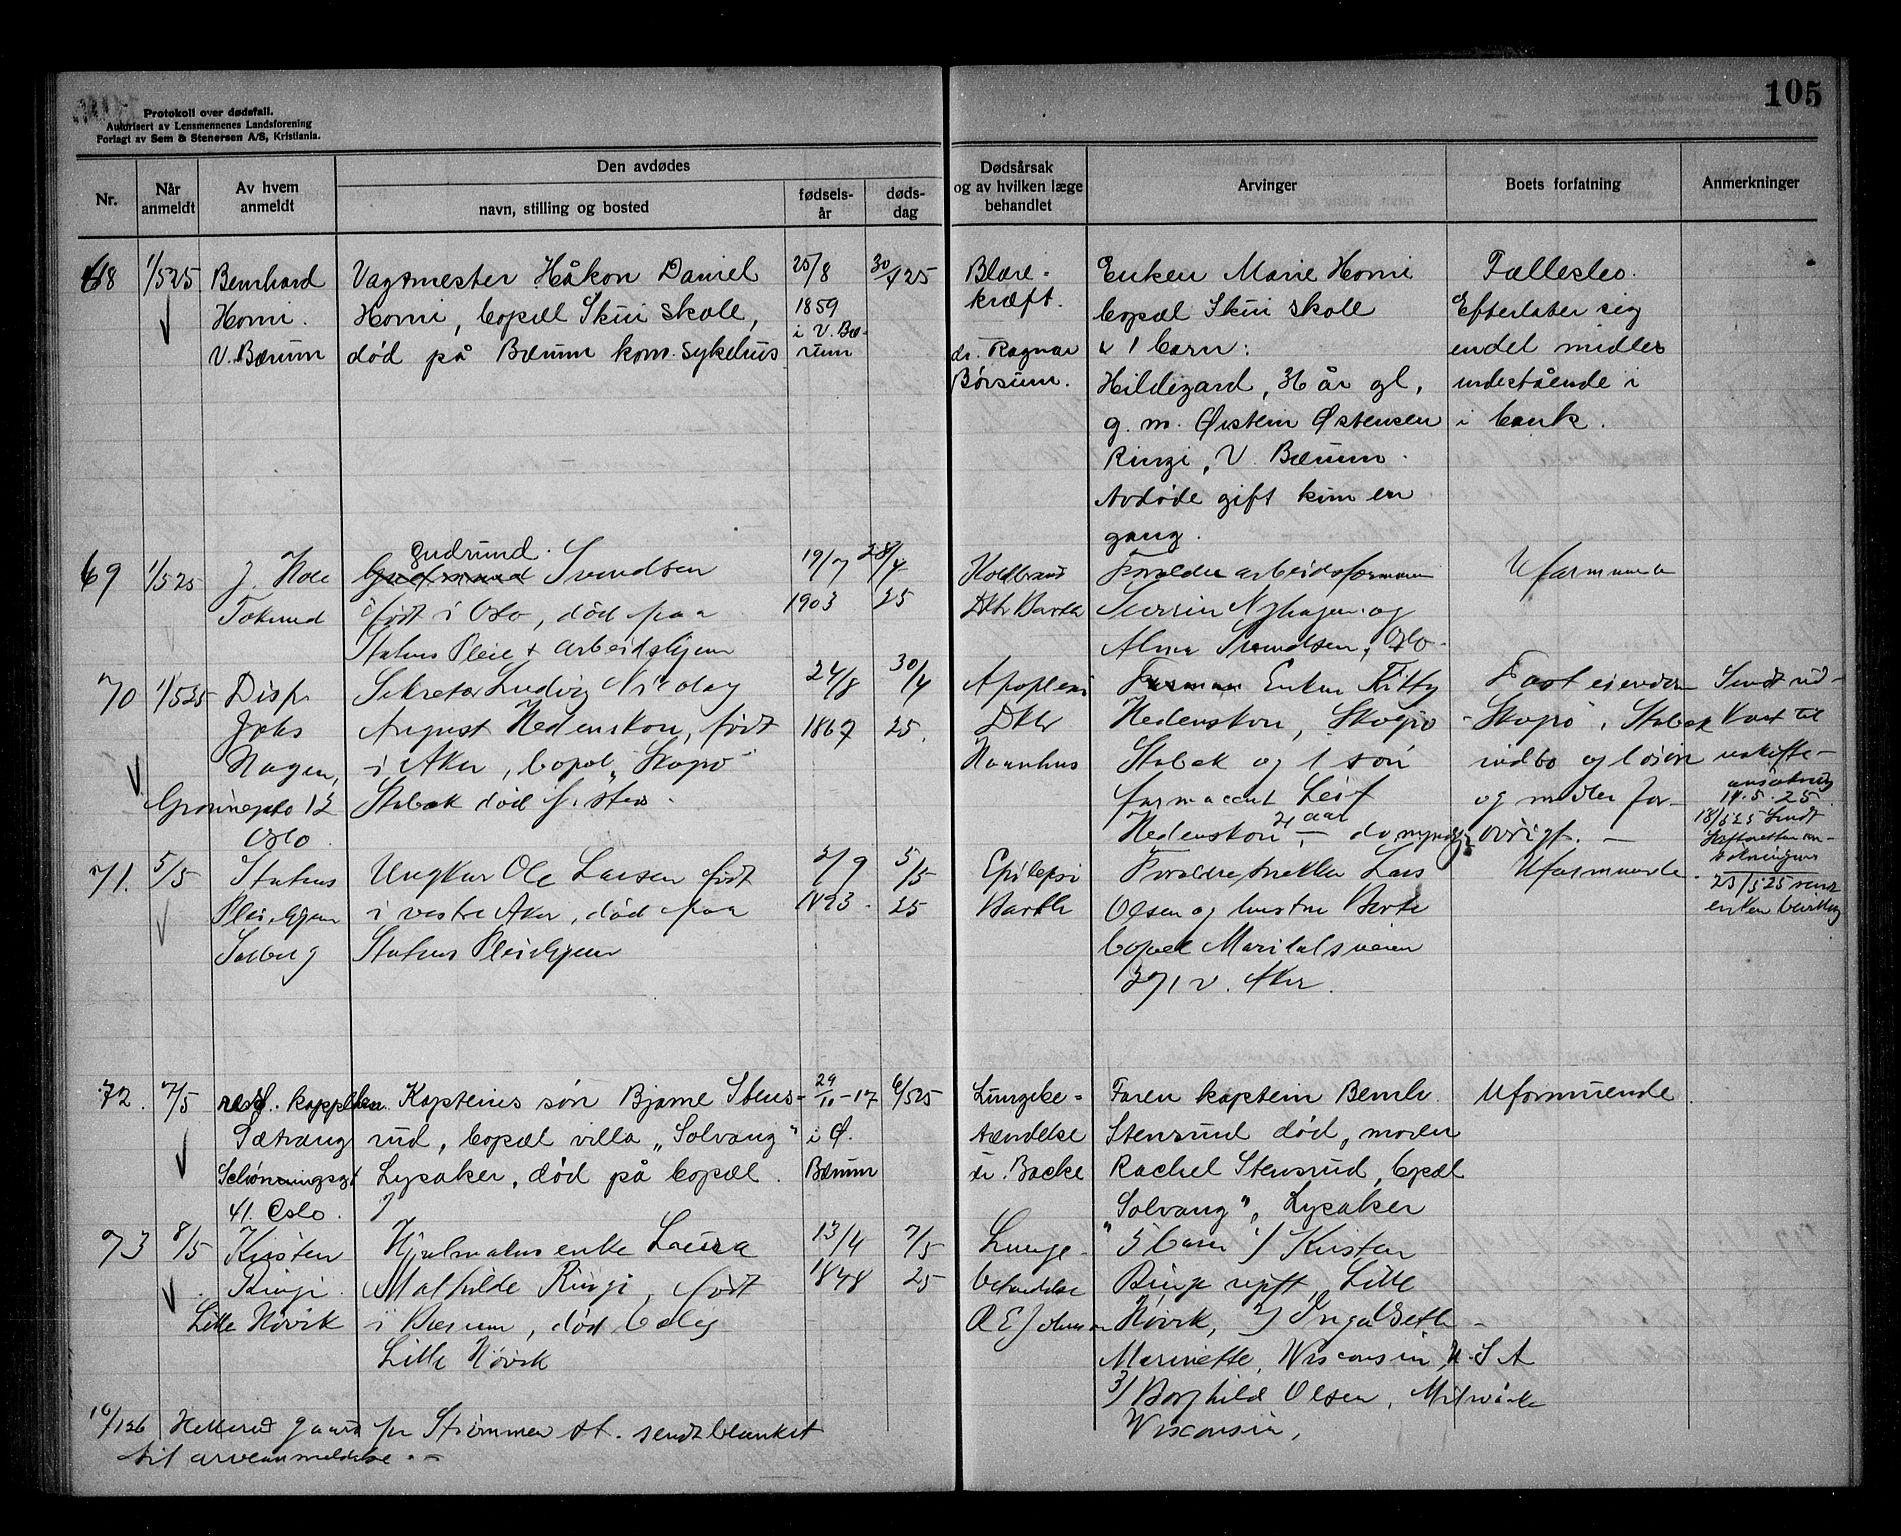 105
Protokoll over dødsfall.
Autorisert av Lensmennenes Landsforening
Forlagt av Sem & Stenersen A/S, Kristiania.
Nr.
Når anmeldt
Av hvem anmeldt
Den avdødes
navn, stilling og bosted
fødsels-år
døds-dag
Dødsårsak og av hvilken læge behandlet
Arvinger
Boets forfatning
Anmerkninger
68 1/5 25 Bernhard Vagtmester Håkon Daniel 25/8 30/4 25 Blære- Enken Marie Horni Fællesbo.
Horni. Horni, bopæl Skui skole, 1859 kræft. bopæl Skui skole Efterlater sig
V. Bærum død på Bærum kom. sykehus i V. Bæ-rum dr. Ragnar & 1 barn: endel midler
Børsum. Hildegard, 34 år gl, indestående i
g. m. Øistein Østensen i bank.
Ringi, V. Bærum.
Avdøde gift kun en
gang.
Gudrund.
69 1/5 25 J. Hole Svendsen 19/7 28/4 Koldbrand Forældre arbeidsformann Uformuende
født i Oslo, død paa 1903 25 Dktr Barth og
Statens Pleie & arbeidshjem Alma Svendsen, Oslo.
70 1/5 25 Disp. Sekretær Ludvig Nicolay 24/8 30/4 Apopleksi Enken Kitty Fast eiendom Sendt ud-
Johs August Hedenskon, født 1867 25. Dktr Hedenskon, Skogro Stabæk kast til
Hagen, i Aker, bopæl Stabæk og 1 søn indbo og løsøre uskifte-
12 Stabæk død s. sted. farmaceut Leif og midler for- ansøkning
Oslo. Hedenskon, 21 aar øvrigt. 14.5.25
18/5 25 Sendt
71. 5/5 Statens Ungkar Ole Larsen født 2/9 5/5 Epilepsi Forældre Lars Uformuende.
Pleiehjem i vestre Aker, død paa 1893. 25 Barth Olsen og hustru Berte 23/5 25 sendt
Solberg Statens Pleiehjem bopæl Maridalsveien enken bevilling
271 V. Aker.
72. 7/5 resd. kappellan Kapteins søn Bjarne Stens- 29/11-17 6/5 25 Lungebe- Faren kaptein Bernh. Uformuende
Sætrang rud, bopæl villa „Solvang“ i Ø. tændelse Stensrud død, moder
Schønningsgt Lysaker, død på bopæl. Bærum dr. Backe Rachel Stensrud, bpæl
41. Oslo. Solvang“, Lysaker
73 8/5 Kirsten Hjulmakerenke Laura 13/4 7/5 Lunge- 5 barn 1/ Kirsten
Ringi. Mathilde Ringi, født 1848 25 betændelse Ringi ugift, Lille
Lille Høvik i Bærum, død bolig Høvik, 2/ Inga
Lille Høvik Marinette, Wisconsin, U.S.A
3/ Borghild Olsen, Milwauke
Wisconsin,
16/1 26 gaard pr Strømmen st. sendt blanket
til arveanmeldelse.